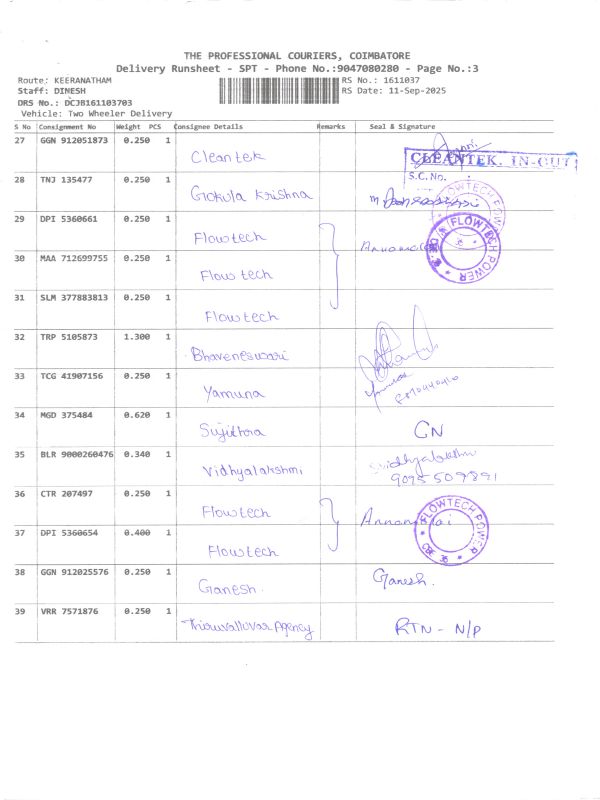 THE PROFESSIONAL COURIERS, COIMBATORE
Delivery Runsheet - SPT - Phone No.:9047080280 - Page No.:3
Route: KEERANATHAM RS No.: 1611037
Staff: DINESH RS Date: 11-Sep-2025
DRS No.: DCJB161103703
Vehicle: Two Wheeler Delivery
S No Consignment No Weight PCS Consignee Details Remarks Seal & Signature
27 GGN 912051873 0.250 1 Cleantek
CLEANTEK. IN-OUT
S.C. No.
28 TNJ 135477 0.250 1 Gokula Krishna
29 DPI 5360661 0.250 1 Flowtech
FLOWTECH POWER
FLOWTECH POWER
30 MAA 712699755 0.250 1 Flowtech
31 SLM 377883813 0.250 1 Flowtech
32 TRP 5105873 1.300 1 Bhaveneswari
33 TCG 41907156 0.250 1 Yamuna
34 MGD 375484 0.620 1 Sujithra CN
35 BLR 9000260476 0.340 1 Vidhyalakshmi
9095509891
36 CTR 207497 0.250 1 Flowtech
FLOWTECH POWER
37 DPI 5360654 0.400 1 Flowtech
38 GGN 912025576 0.250 1 Ganesh. Ganesh.
39 VRR 7571876 0.250 1 Thiruvalluvar Agency RTN - N/P